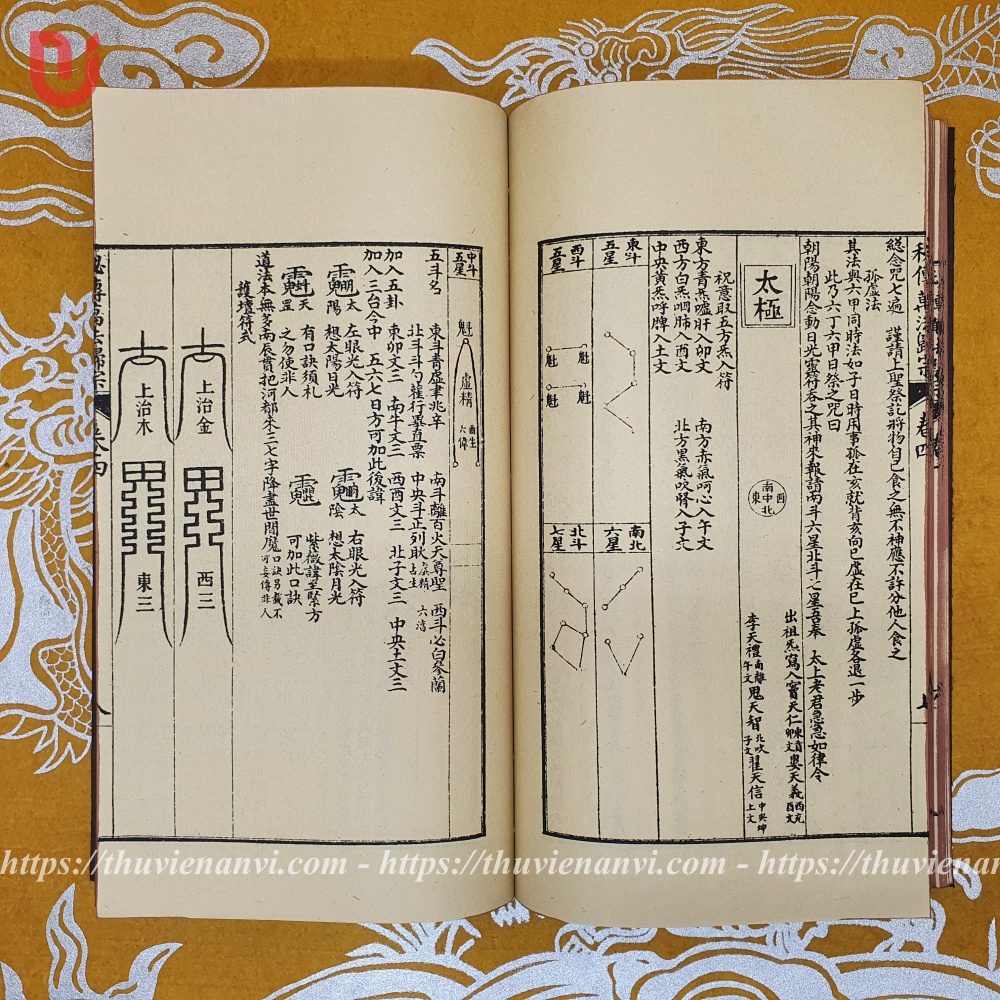 總念咒七遍 謹請上聖祭訖將物自己食之無不神應不許分他人食之
孤虛法
其法與六甲同時法如子日時用事孤在亥就背亥向巳虛在巳上孤虛各退一步
此乃六丁六甲日祭之咒曰
朝陽朝陽念動日光靈符吞之其神來報請南斗六星北斗七星吾奉 太上老君急急如律令
太極
南
東中西
北
出祖炁寫人竇天仁
卯文
天義
酉文
李天禮
南離
午文
天智
北坎
子文
翟天信
中央坤
上文
祝意取五方炁入符
東方青炁噓肝入卯文 南方赤氣呵心入午文
西方白炁呬肺入酉文 北方黑氣吹腎入子文
中央黃炁呼脾入土文
東斗
五星
西斗
五星
魁
魁
魁
魁
南北
六星
北斗
七星
卷四
中斗
五星
魁
虛精
六偉
五斗名
東斗青虛聿兆辛 南斗離百火天尊聖 西斗必白參蘭
北斗斗勺
直票 中央斗正列
虛精
占生
六
加入五卦 東卯文三 南午文三 西酉文三 北子文三 中央土文三
加入三台令中 五六七日方可加此後諱
太陽
左眼光入符
想太陽日光
太陰
右眼光入符
想太陰月光
天罡
有口訣須札
之勿使非人
紫微諱至緊方
可加此口訣
道法本無多南辰貫北河都來三七字降盡世間魔
口訣另載不
可妄傳非人
護壇符式
上治金
西三
上治木
東三
卷四
八
https://thuvienanvi.com - https://thuvienanvi.com - https://thuvienanvi